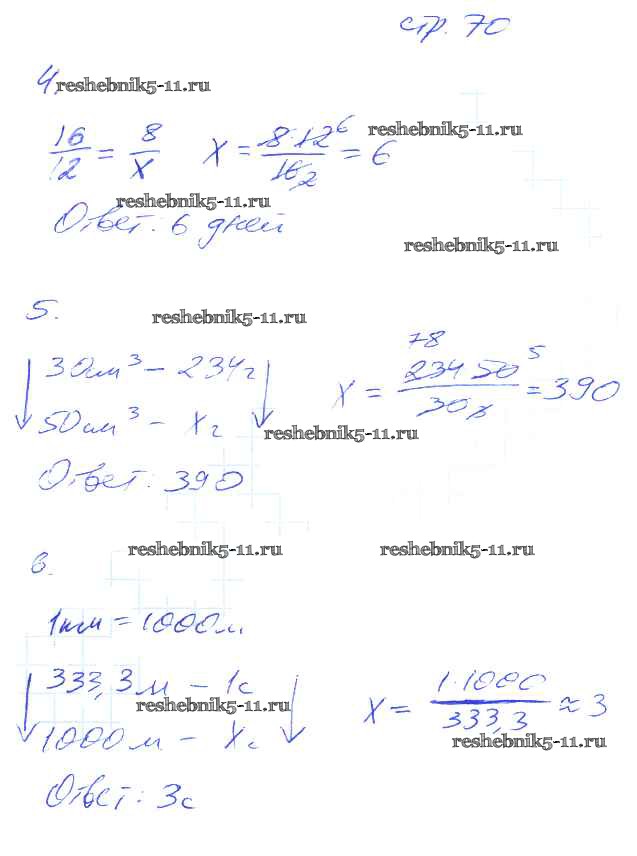 стр. 70
4. reshebnik5-11.ru
16/12 = 8/x   x = 8·12 6/16 2 = 6
reshebnik5-11.ru
reshebnik5-11.ru
Ответ: 6 дней
reshebnik5-11.ru
5.
reshebnik5-11.ru
↓ 30см³ – 234г ↓   x = 78 234 50 5/30 = 390
50см³ – xг
reshebnik5-11.ru
Ответ: 390
reshebnik5-11.ru   reshebnik5-11.ru
6.
1км = 1000м
↓ 333,3м – 1с ↓   x = 1·1000/333,3 ≈ 3
reshebnik5-11.ru
1000м – xс
reshebnik5-11.ru
Ответ: 3с